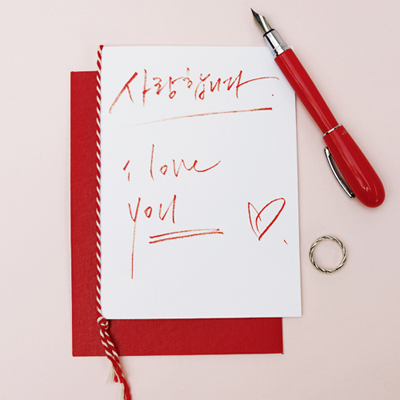 사랑합니다
i love
you